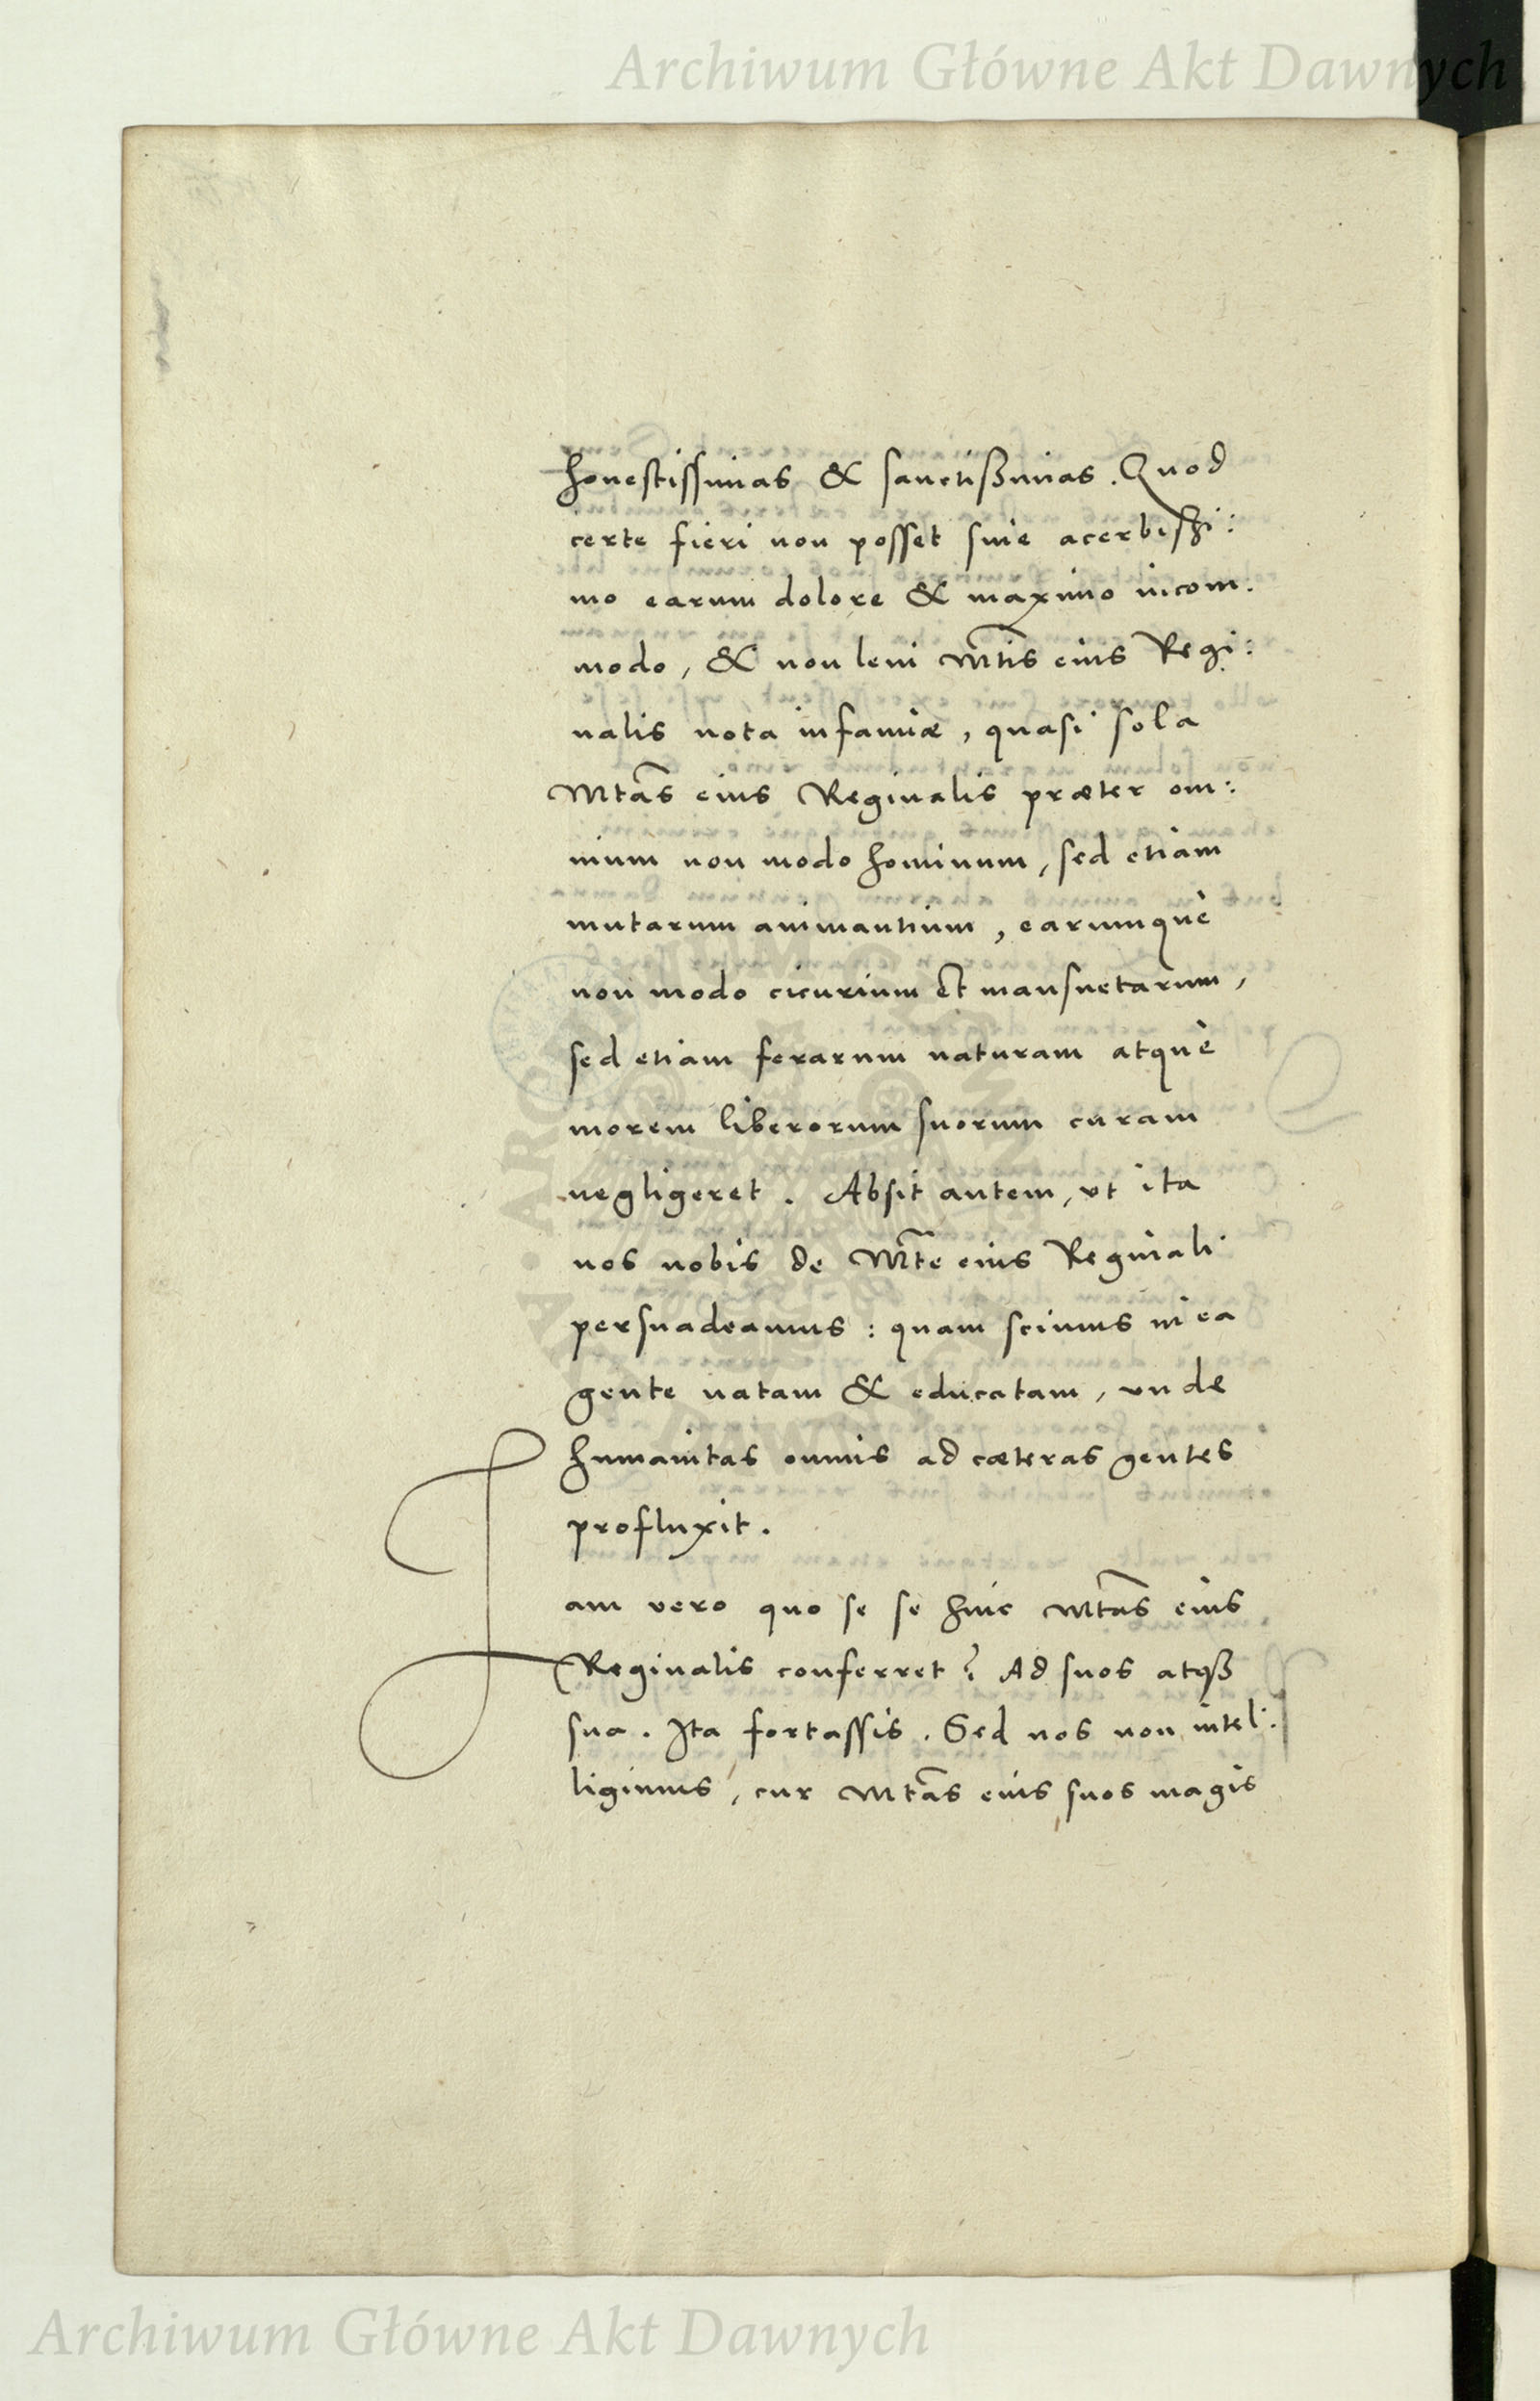 Archiwum Główne Akt Dawnych
honestissimas & sanctißimas. Quod
certe fieri non posset sine acerbissi:
mo earum dolore & maximo incom:
modo, & non leni Mtis eius Regi:
nalis nota infamiæ, quasi sola
Mtas eius Reginalis præter om:
nium non modo hominum, sed etiam
mutarum animantium, earumque
non modo cicurium et mansuetarum,
sed etiam ferarum naturam atque
morem liberorum suorum curam
negligeret. Absit autem, vt ita
nos nobis de Mte eius Reginali
persuadeamus: quam scimus in ea
gente natam & educatam, vnde
humanitas omnis ad cæteras gentes
profluxit.
Jam vero quo se se hinc Mtas eius
Reginalis conferret? Ad suos atqß
sua. Ita fortassis. Sed nos non intel:
ligimus, cur Mtas eius suos magis
Archiwum Główne Akt Dawnych